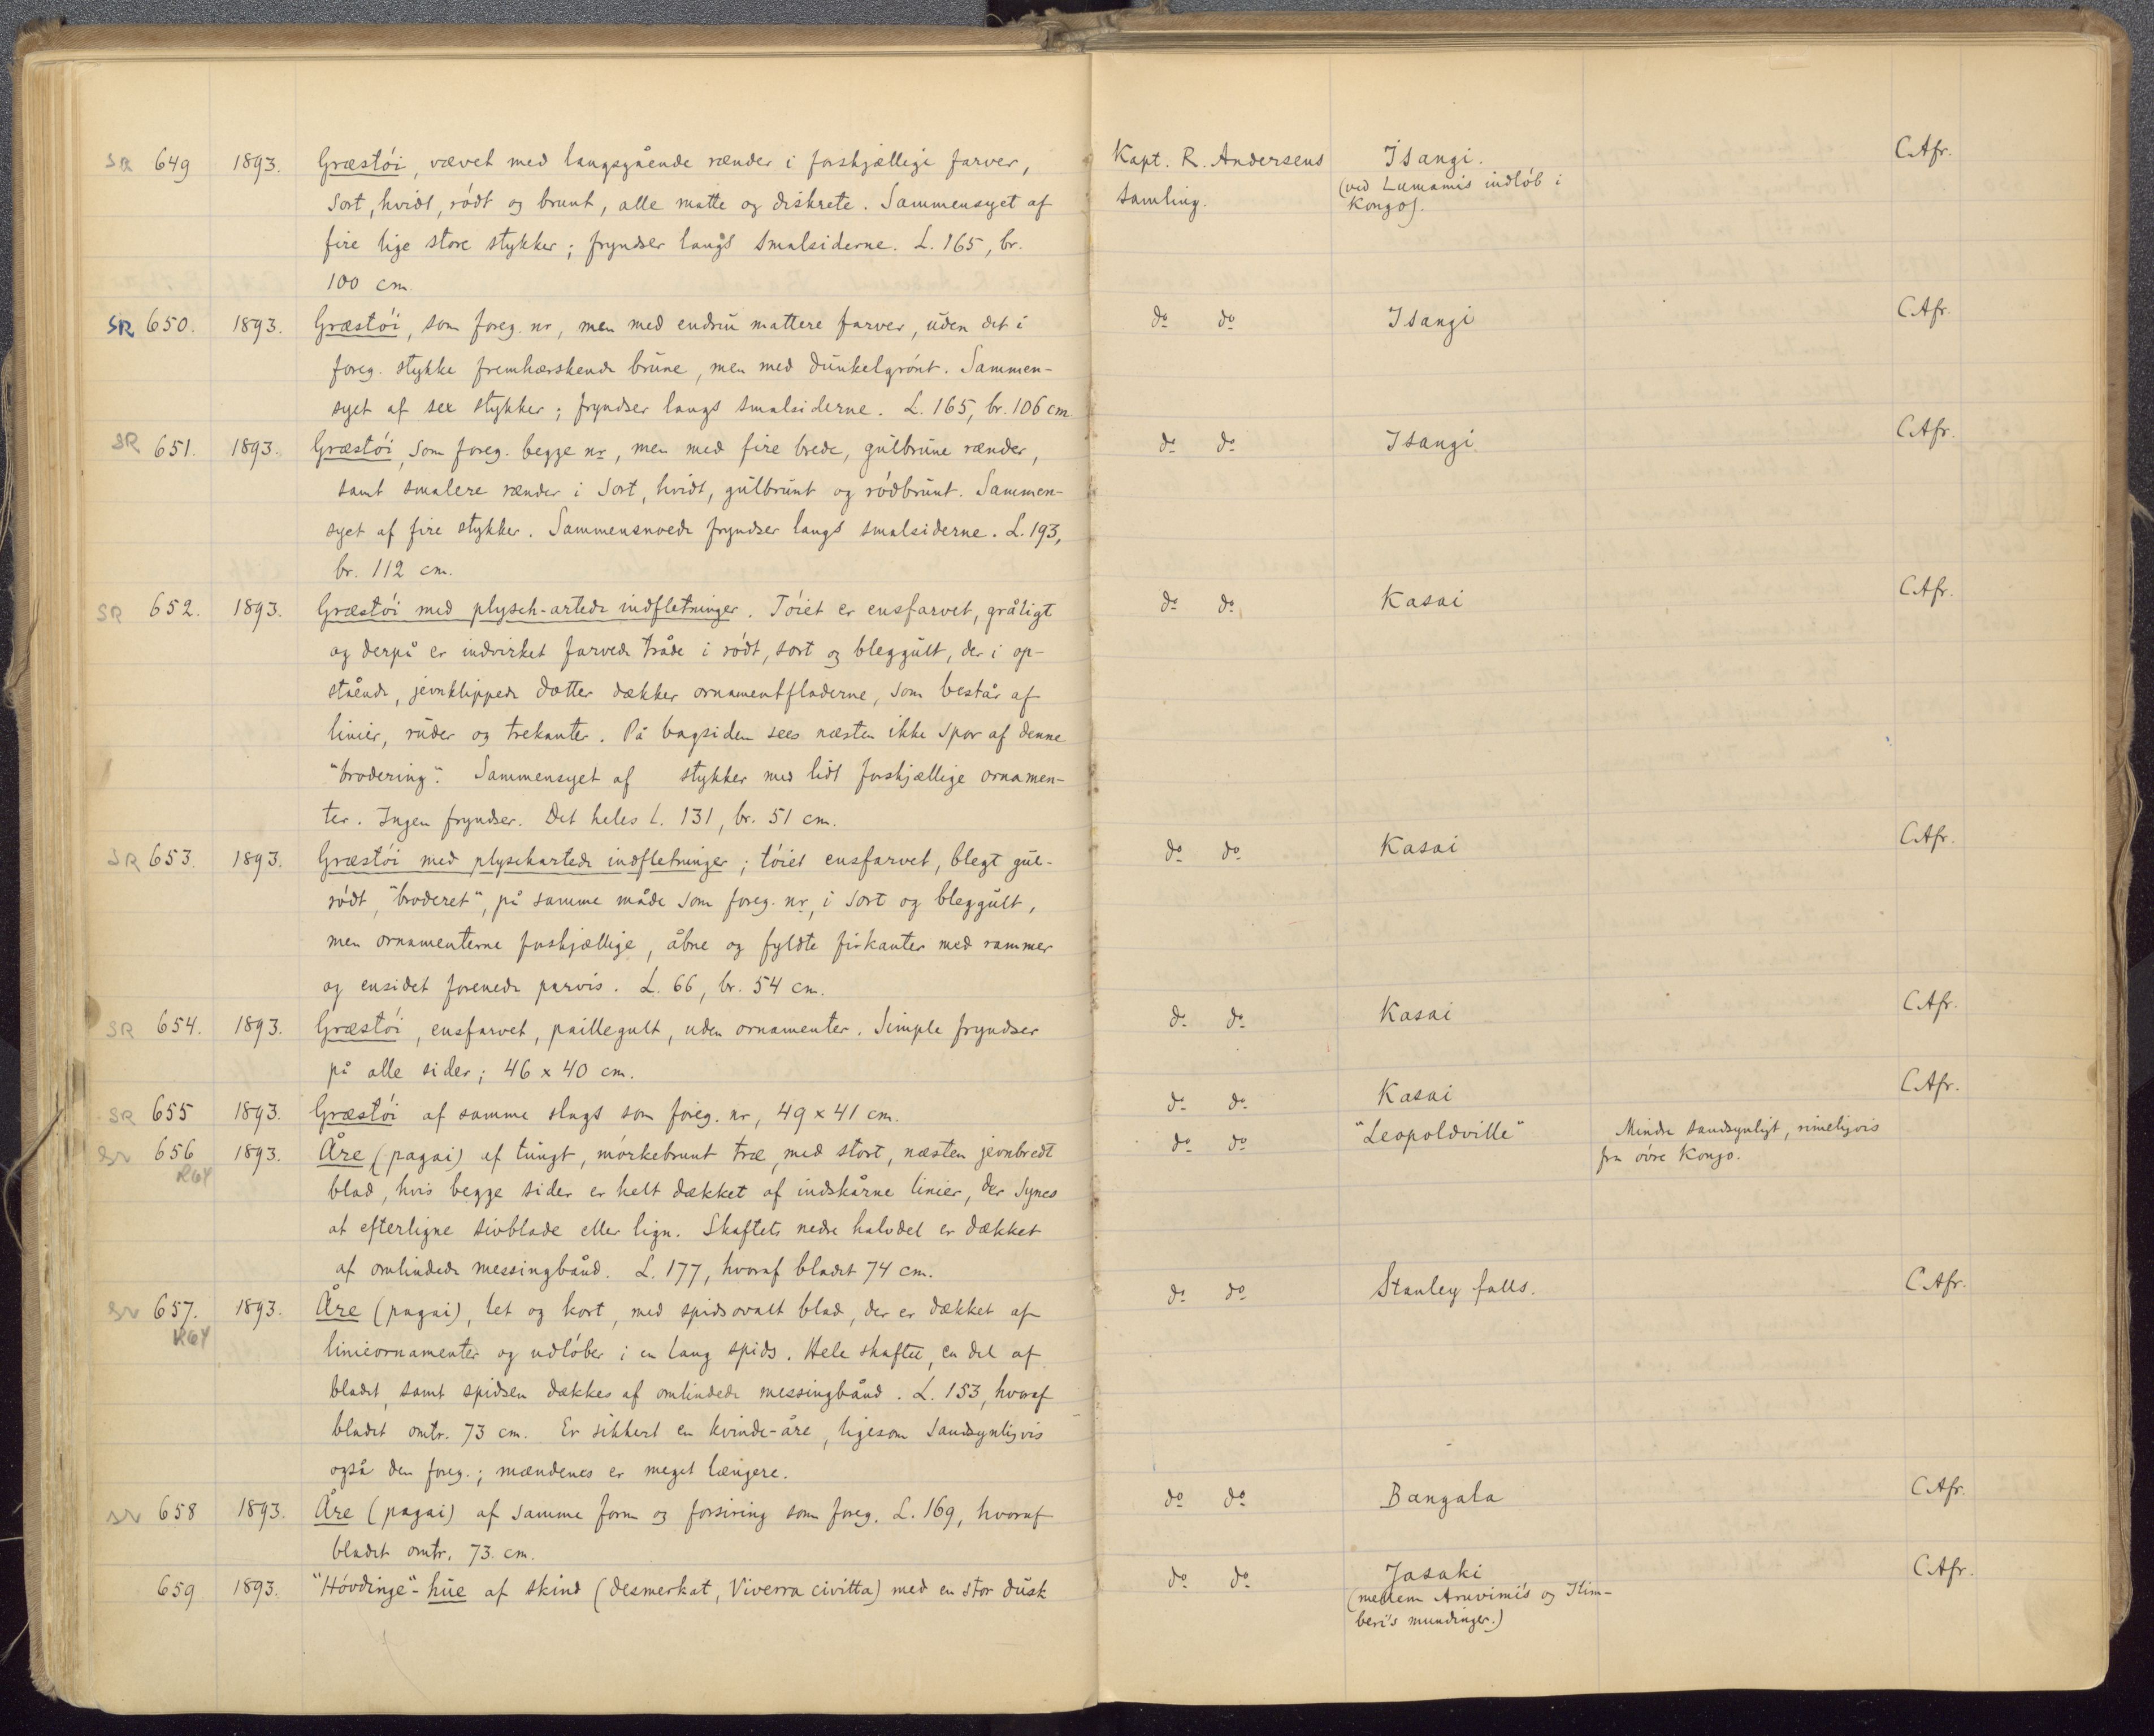 SR 649 1893. Græstói, vævet med langsgående rænder i forskjællige farver, Kapt. R. Andersens Isangi. C.Afr.
sort, hvidt,ródt og brunt, alle matte og diskrete. Sammensyet af samling. (ved Lumamis indlób i Kongo).
fire lige store stykker; fryndser langs smalsiderne. L. 165, br.
100 cm
SR 650. 1893. Græstói, som foreg. nr, men med endnu mattere farver, uden det i do do Isangi C.Afr.
foreg. stykke fremhærskende brune, men med dunkelgrónt. Sammen-
syet af sex stykker; fryndser langs smalsiderne. L. 165, br. 106 cm
SR 651. 1893. Græstói, som foreg. begge nr, men med fire brede, gulbrune rænder, do do Isangi C.Afr.
samt smalere rænder i sort, hvidt, gulbrunt og ródbrunt. Sammen-
syet af fire stykker. Sammensnoede fryndser langs smalsiderne. L. 193,
br. 112 cm.
SR 652. 1893. Græstói med plysch-artede indfletninger. Tóiet er ensfarvet, gråligt do do Kasai C.Afr.
og derpå er indvirket farvede tråde i ródt, sort og bleggult, der i op-
stående, jevnklippede dotter dækker ornamentfladerne, som består af
linier, ruder og trekanter. På bagsiden sees næsten ikke spor af denne
"brodering". Sammensyet af stykker med lidt forskjællige ornamen-
ter. Ingen fryndser. Det heles l. 131, br. 51 cm.
SR 653. 1893. Græstói med plyschartede indfletninger; tóiet ensfarvet, blegt gul- do do Kasai C.Afr.
ródt, "broderet", på samme måde som foreg. nr, i sort og bleggult,
men ornamenterne forskjællige, åbne og fyldte firkanter med rammer
og ensidet forenede parvis. L. 66, br. 54 cm.
SR 654. 1893. Græstói, ensfarvet, paillegult, uden ornamenter. Simple fryndser do do Kasai C.Afr.
på alle sider; 46 x 40 cm.
SR 655 1893. Græstói af samme slags som foreg. nr, 49 x 41 cm. do do Kasai C.Afr.
SR 656 1893. Åre (pagai) af tungt, mórkebrunt træ, med stort, næsten jevnbredt do do "Leopoldville" Mindre sandsynligt, rimeligvis
R64 blad, hvis begge sider er helt dækket af indskårne linier, der synes fra óvre Kongo.
at efterligne sivblade eller lign. Skaftets nedre halvdel er dækket
af omlindede messingbånd. L. 177, hvoraf bladet 74 cm.
SR 657. 1893. Åre (pagai), let og kort, med spidsovalt blad, der er dækket af do do Stanley falls. C.Afr.
R64 linieornamenter og udlóber i en lang spids. Hele skaftet, en del af
bladet, samt spidsen dækkes af omlindede messingbånd. L. 153, hvoraf
bladet omtr. 73 cm. Er sikkert en kvinde-åre, ligesom sandsynligvis
også den foreg.; mændenes er meget længere.
SR 658 1893. Åre (pagai) af samme form og forsiring som foreg. L. 169, hvoraf do do Bangala C.Afr.
bladet omtr. 73 cm.
659 1893. "Hóvdinge"-hue af skind (desmerkat, Viverra civitta) med en stor dusk do do Jasaki C.Afr.
(mellem Aruvimi's og Itim-
beri's mundinger.)